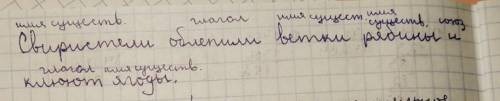 имя существ. глагол имя существ. имя существ. союз
Свиристели облепили ветки рябины и
глагол имя существ.
клюют ягоды.